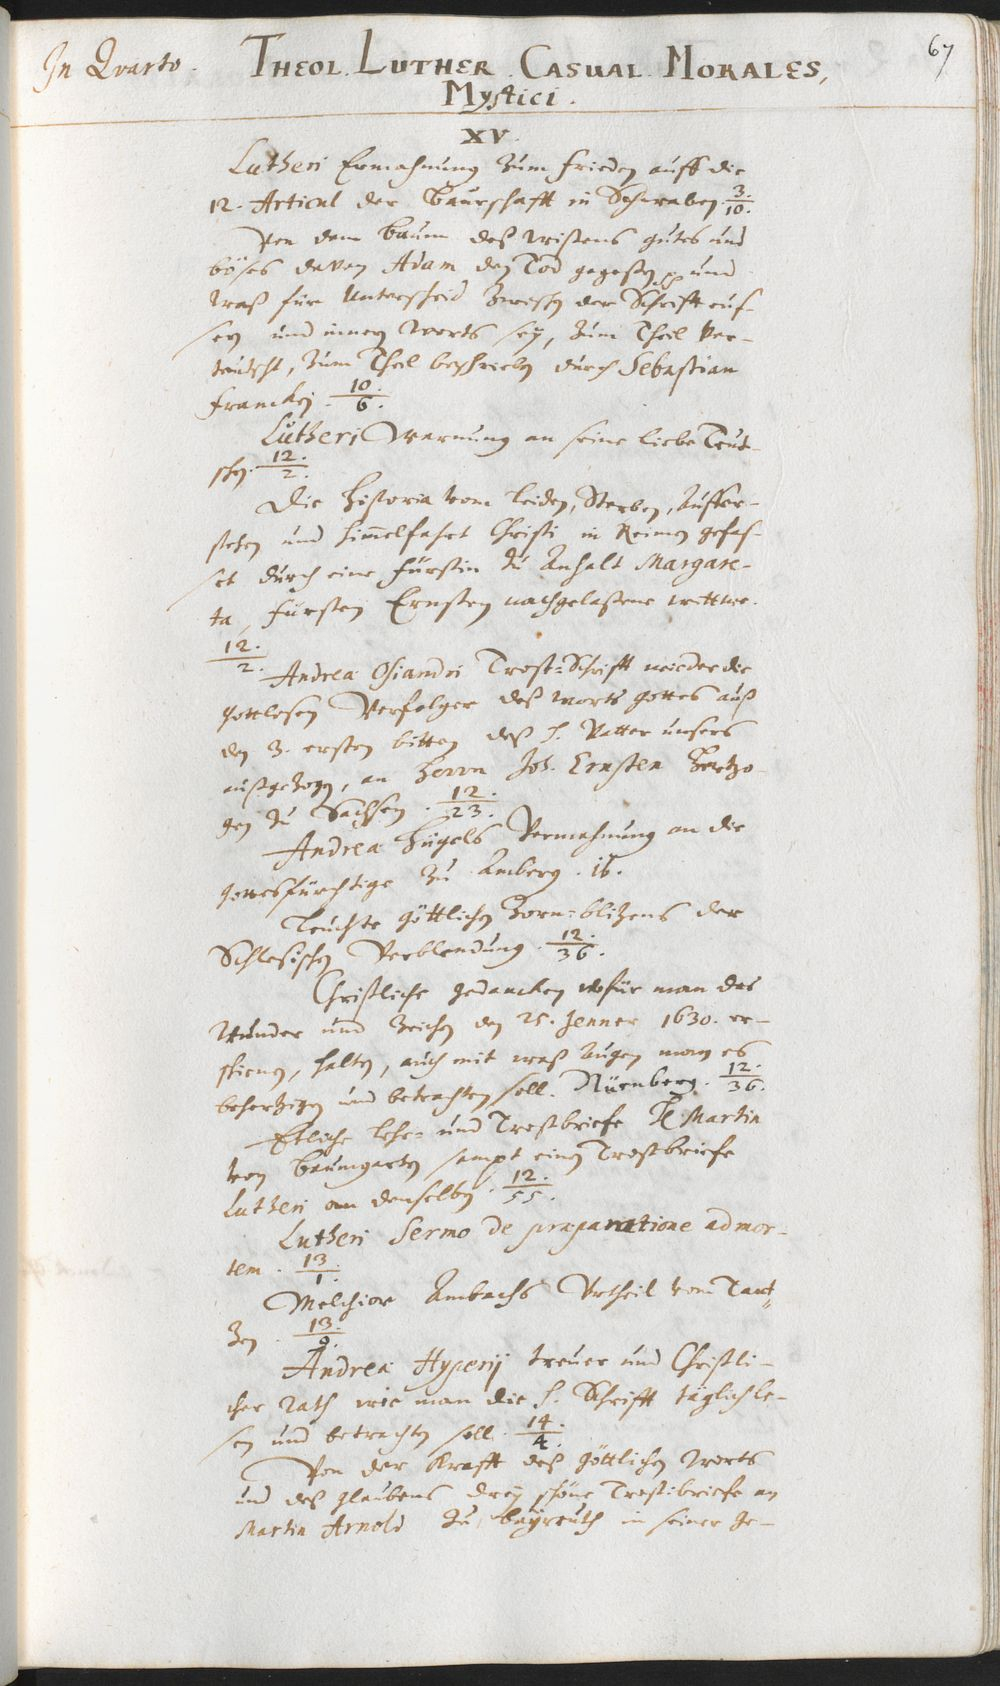 67
In Quarto. THEOL. LUTHER. CASUAL. MORALES,
Mystici.
XV.
Lutheri Ermahnung zum frieden auff die
12. Articul der Baurschafft in Schwaben. 3./10.
Von dem baum deß wißens gutes und
böses davon Adam den Tod gegeßen und
waß für Unterscheid zwischen der Schrifft eus-
sern und innern worts sey, zum Theil ver-
teutscht, zum Theil beschrieben durch Sebastian
Francken. 10./6.
Lutheri Warnung an seine liebe Teut-
schen. 12./2.
Die Historia vom leiden, Sterben, Auffer-
stehen und himmelfahrt Christi in Reimen gefas-
set durch eine fürstin zu Anhalt Margare-
ta, fürsten Ernsten nachgelaßene wittwe.
12./2.
Andreæ Osiandri Trost-Schrifft wieder die
gottlosen Verfolger deß worts gottes auß
den 3. ersten bitten deß h. Vatter unsers
außgezogen, an Herrn Joh. Ernsten Hertzo-
gen zu Sachsen. 12./23.
Andreæ Hügels Vermahnung an die
gottesfürchtige zu Amberg. ib.
Leuchte göttlichen Zorn-blitzens der
Schlesischen Verblendung. 12./36.
Christliche gedancken wofür man das
Wunder und Zeichen den 25. Jenner 1630. er-
schienen, halten, auch mit waß Augen man es
behertzigen und betrachten soll. Nürnberg. 12./36.
Etliche lehr- und Trostbriefe H. Martin
von baumgarten sampt einen Trostbriefe
Lutheri an denselben. 12./55.
Lutheri Sermo de præparatione ad mor-
tem. 13./1.
Melchior Ambachs Urtheil vom Tant-
zen. 13./9.
Andreæ Hyperij treuer und Christli-
cher Rath wie man die h. Schrifft täglich le-
sen und betrachten soll. 14./4.
Von der Krafft deß göttlichen Worts
und deß glaubens drey schöne Trostbriefe an
Martin Arnold zu bayreuth in seiner ge-